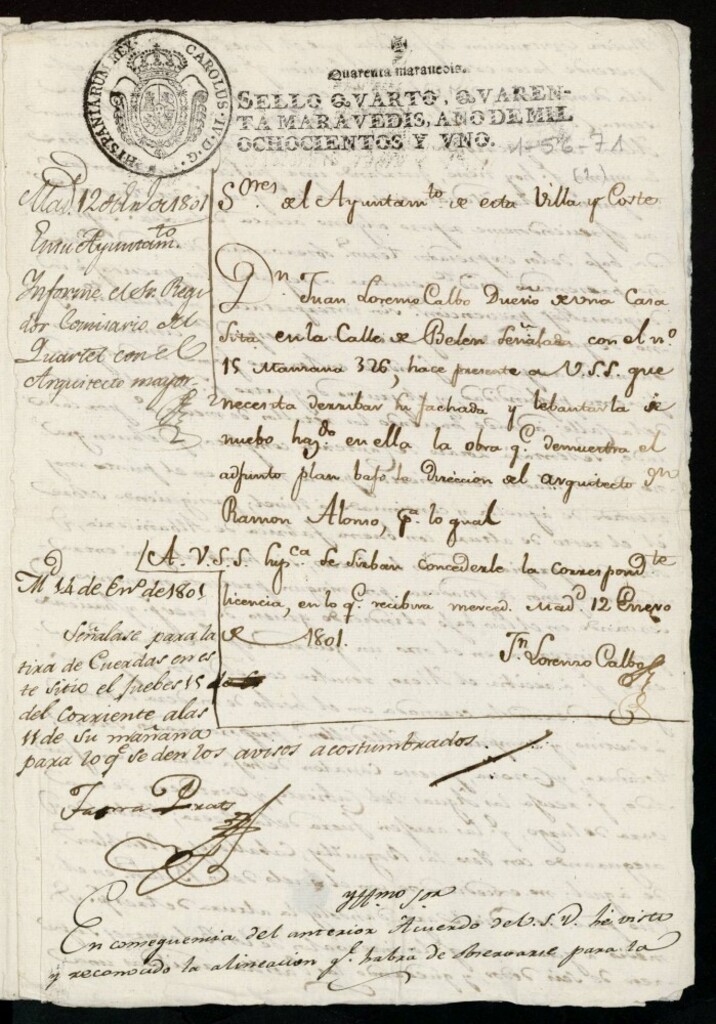 HISPANIARUM REX. CAROLUS IV D. G.
Quarenta marauedis.
SELLO QVARTO, QVAREN-
TA MARAVEDIS, AÑO DE MIL
OCHOCIENTOS Y VNO.
1-56-71
Mad. 12 de En.º de 1801
En su Ayuntam.to
Informe el Sr. Regi
dor Comisario del
Quartel con el
Arquitecto mayor.
S.ores del Ayuntam.to de esta Villa y Corte
D.n Juan Lorenzo Calbo Dueño de una Casa
sita en la Calle de Belen señalada con el n.º
15 Manzana 326, hace presente a V.S.S. que
necesita derribar su fachada y lebantarla de
nuebo haz.do en ella la obra q.e demuestra el
adjunto plan bajo la Direccion del arquitecto D.n
Ramon Alonso, p.a lo qual
A. V.S.S. sup.ca se sirban concederle la correspond.te
licencia, en lo q.e recibira merced. Mad.d 12 Enero
de 1801.
J.n Lorenzo Calbo
M.d 14 de En.º de 1801
Señalase para la
tira de Cuerdas en es
te sitio el Juebes 15
del Corriente a las
11 de su mañana
para lo q.e se den los avisos acostumbrados.
Prats
Yllmo Sor
En consequencia del anterior Acuerdo de V.S.Y. he visto
y reconocido la alineacion q.e habra de observarse para la